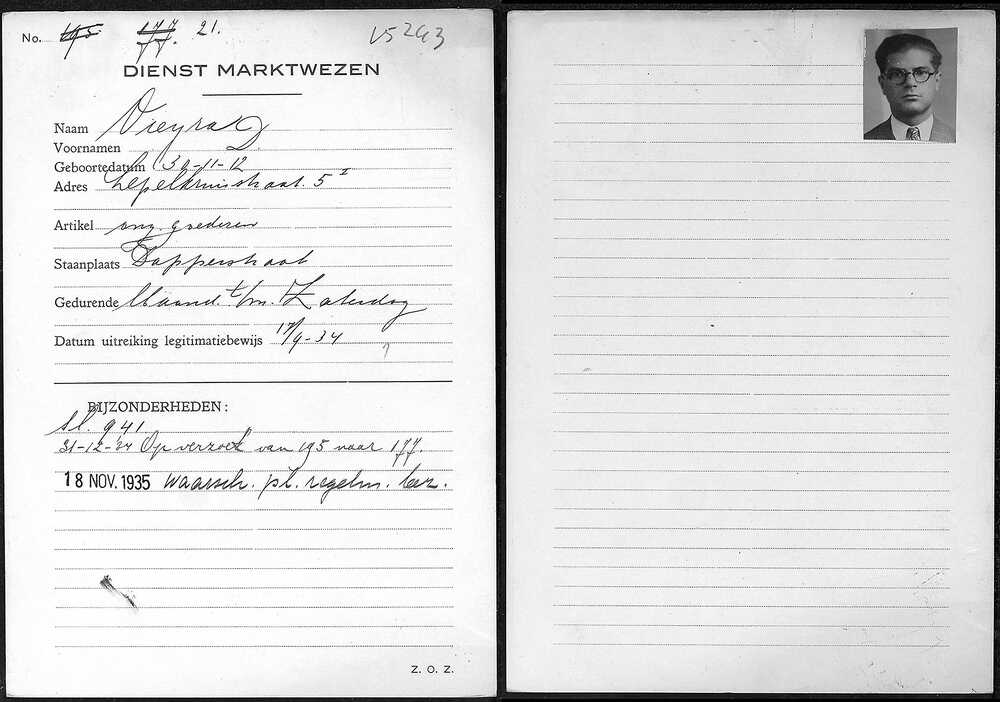 No. 195 177. 21. V5243
DIENST MARKTWEZEN
Naam Vieyra
Voornamen D.
Geboortedatum 30-11-12
Adres Lepelkruisstraat. 5 I
Artikel ong. goederen
Staanplaats Dapperstraat
Gedurende Maand. t/m. Zaterdag
Datum uitreiking legitimatiebewijs 17/9-34
BIJZONDERHEDEN:
sl. 941
31-12-'34 Op verzoek van 195 naar 177.
18 NOV. 1935 waarsch. pl. regelm. bez.
Z. O. Z.